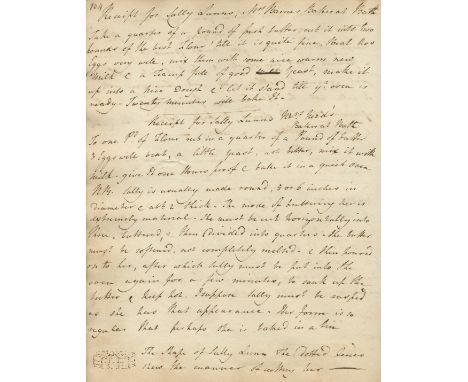 104
Receipt for Sally Lunns, Mrs Barnes Baker at Bath
Take a quarter of a Pound of fresh butter, rub it into two
pounds of the best Flour 'till it is quite fine, beat two
Eggs very well, mix them with some new warm
Milk & a teacup full of good Yeast, make it
up into a nice Dough & let it stand till yr oven is
ready. Twenty minutes will bake it.
Receipt for Sally Lunns Mrs
Baker at Bath
To one Pd. of Flour rub in a quarter of a Pound of butter
3 Eggs well beat, a little yeast, mix it with
milk. give it one Hours proof & bake it in a quick oven
NB. Sally is usually made round, 5 or 6 inches in
diameter & abt 2 thick. The mode of buttering her is
extremely material. She must be cut horizontally into
three, buttered, & then divided into quarters. The butter
must be softened, not completely melted. & then poured
on to her, after which Sally must be put into the
oven again for a few minutes, to soak up the
butter & keep hot. I suppose Sally must be
as she has that appearance. Her form is so
regular that perhaps she is baked in a tin
The Shape of Sally Lunn The dotted Lines
shew the manner of cutting her